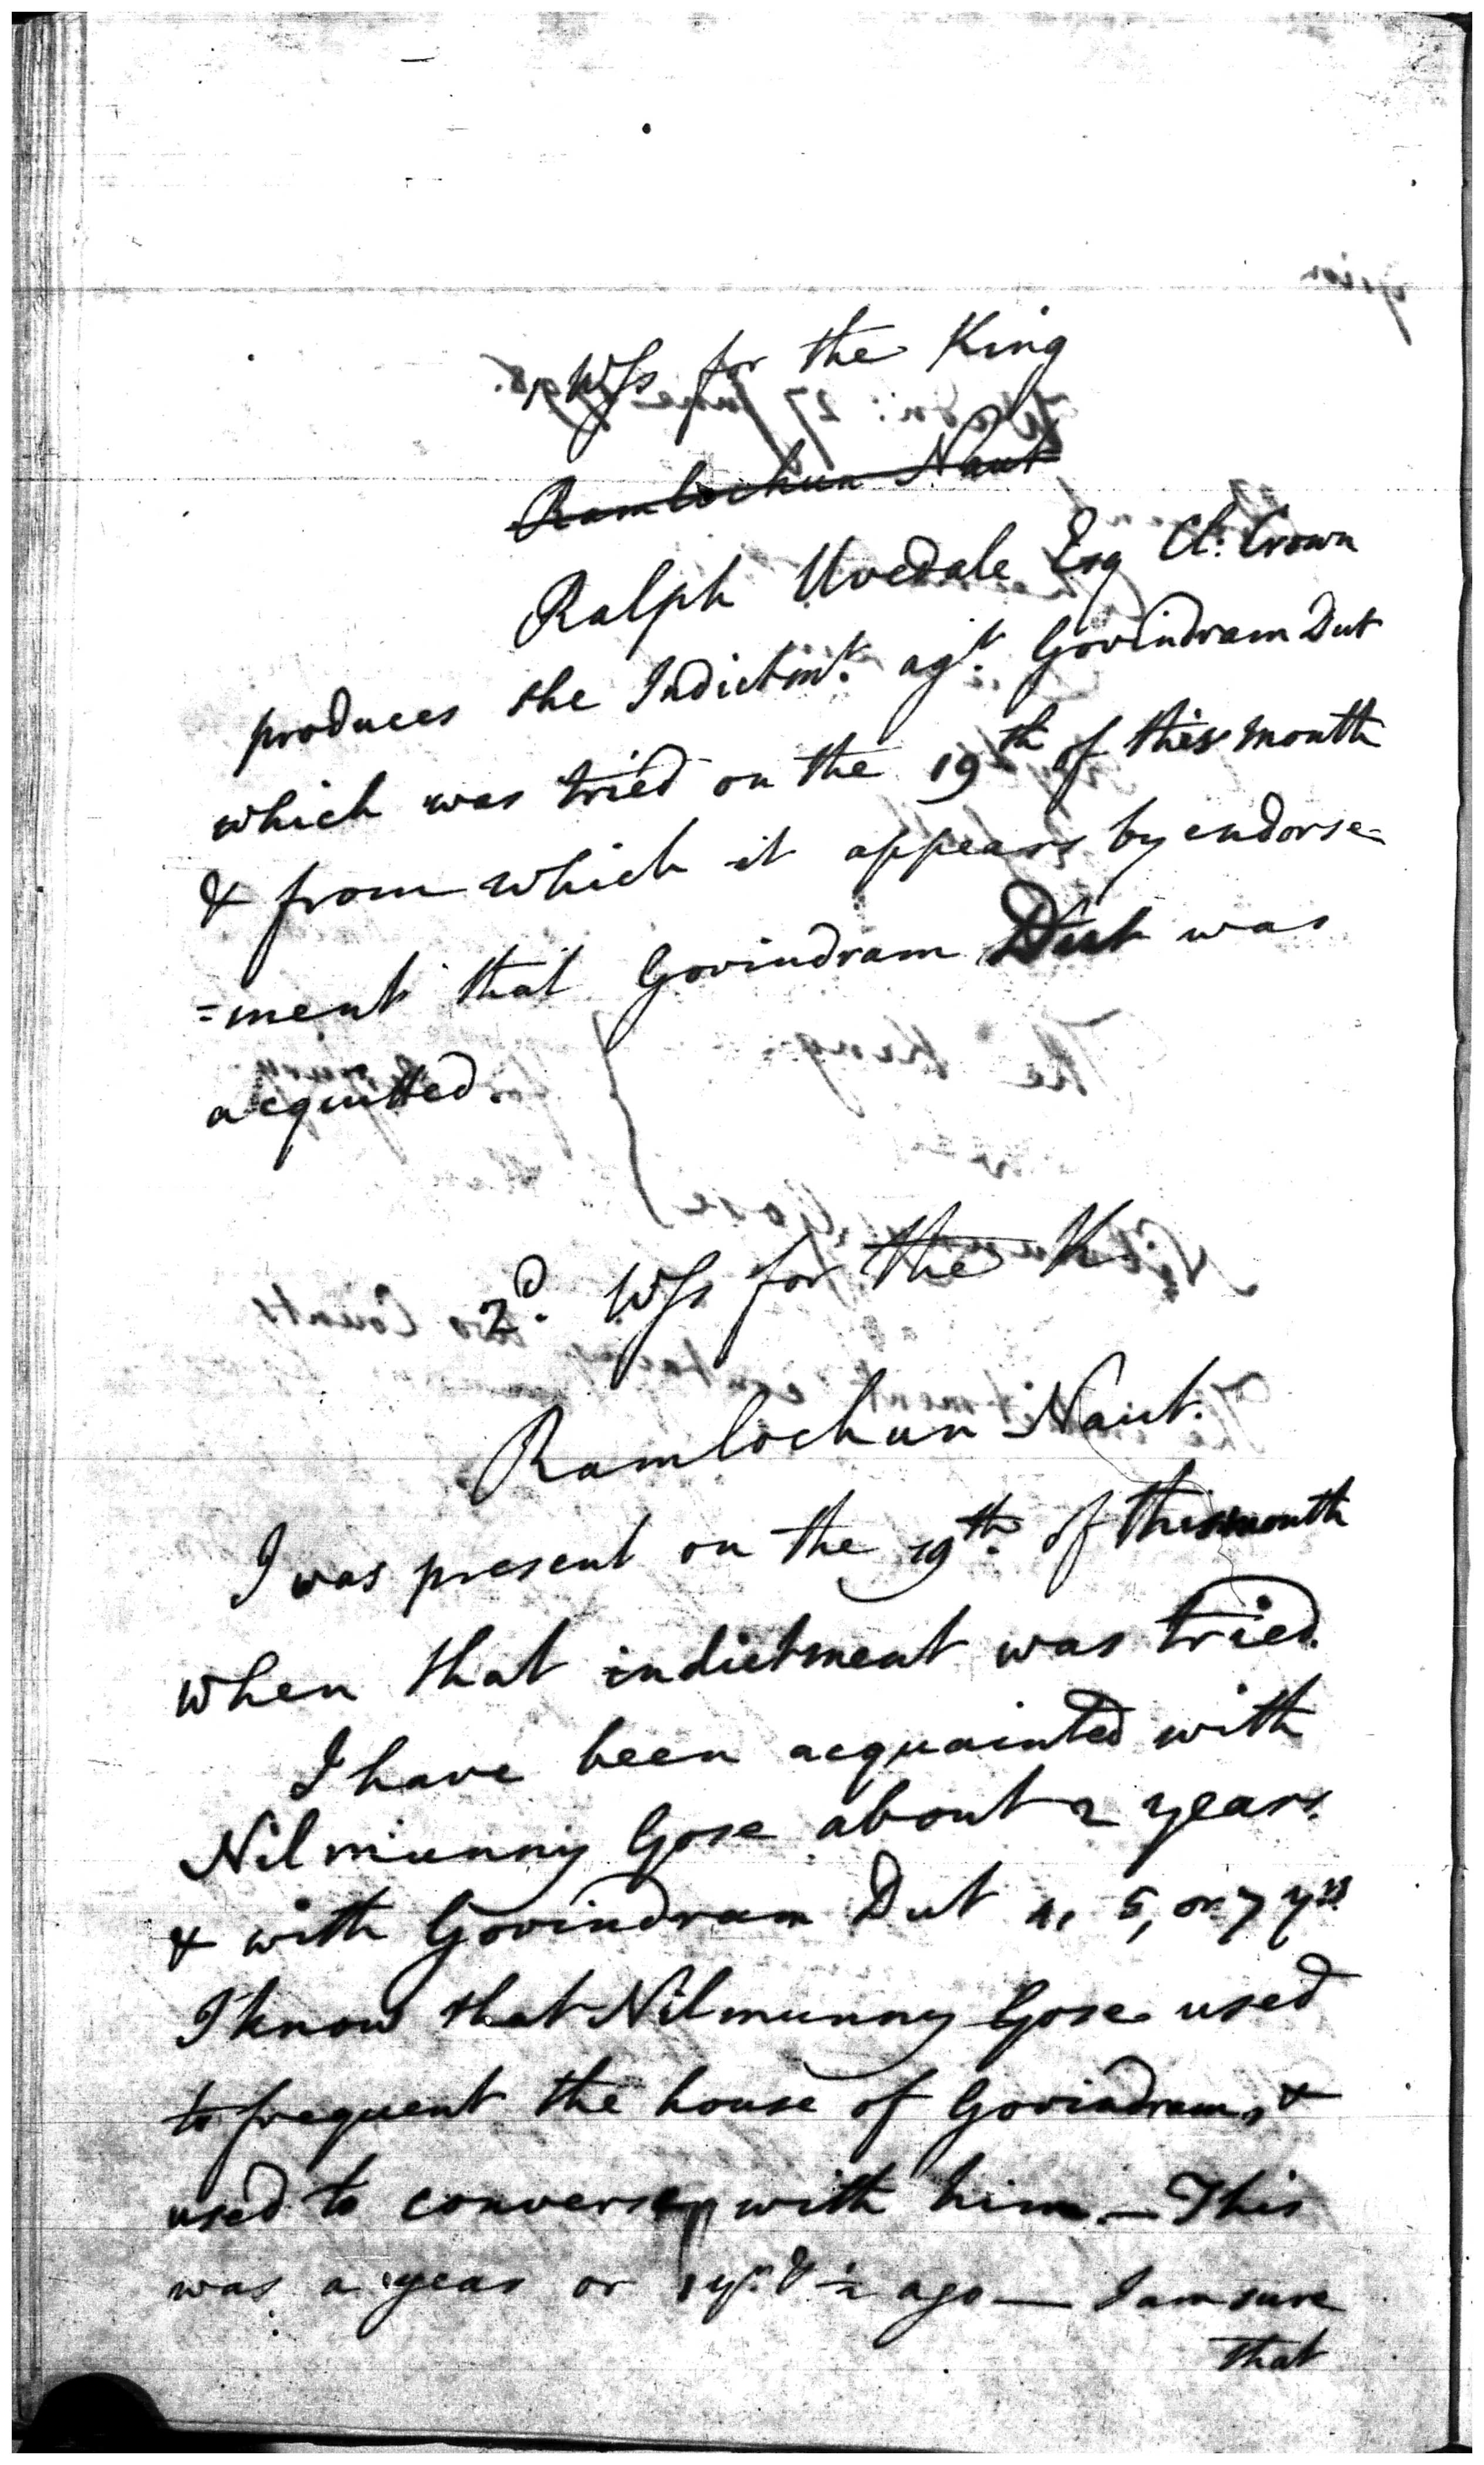 1 Wss for the King
Ramlochun Naut
Ralph Uvedale Esq Cl: Crown
produces the Indictmt. agt. Govindram Dut
which was tried on the 19th of this month
& from which it appears by endorse=
=ment that Govindram Dut was
acquitted.
2d. Wss for the K.
Ramlochun Naut.
I was present on the 19th. of this month
when that indictment was tried.
I have been acquainted with
Nilmunny Gose about 2 years.
& with Govindram Dut 4, 5, or 7 yrs
I know that Nilmunny Gose used
to frequent the house of Govindram, &
used to converse with him — This
was a year or 1 yr. & ½ ago — I am sure
that